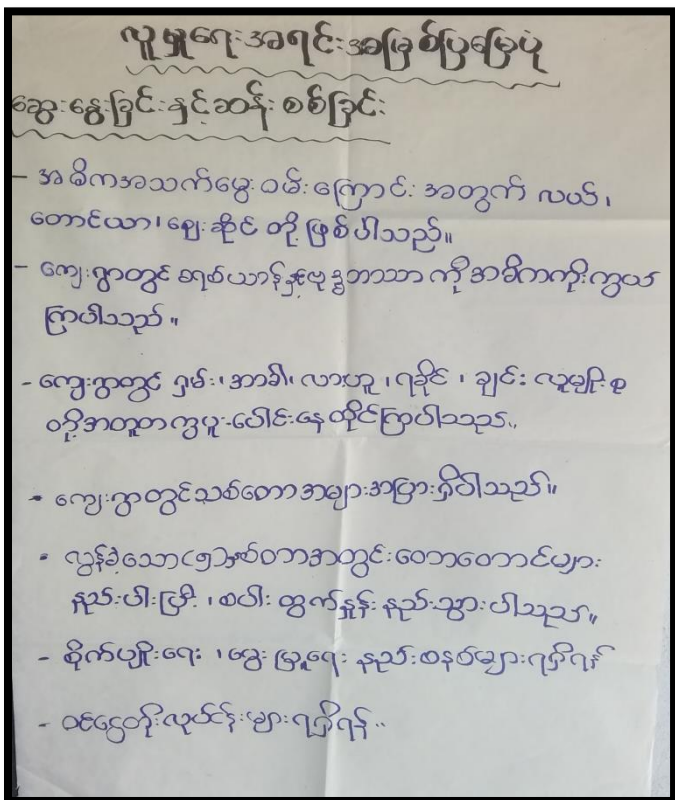 လူမှုရေးအရင်းအမြစ်ပြမြေပုံ
ဆွေးနွေးခြင်းနှင့်ဆန်းစစ်ခြင်း
- အဓိကအသက်မွေးဝမ်းကြောင်းအတွက် လယ်၊
တောင်ယာ၊ဈေးဆိုင် တို့ဖြစ်ပါသည်။
- ကျေးရွာတွင် ခရစ်ယာန်နှင့်ဗုဒ္ဓဘာသာ ကိုအဓိကကိုးကွယ်
ကြပါသည်။
- ကျေးရွာတွင် ရှမ်း၊အာခါ၊လားဟူ၊ရခိုင်၊ ချင်း လူမျိုးစု
ဝတို့အတူတကွပူးပေါင်းနေထိုင်ကြပါသည်။
• ကျေးရွာတွင်သစ်တောအများအပြားရှိပါသည်။
• လွန်ခဲ့သော(၅)နှစ်တာအတွင်းတောတောင်များ
နည်းပါးပြီး၊စပါးထွက်နှုန်းနည်းသွားပါသည်။
- စိုက်ပျိုးရေး၊မွေးမြူရေး နည်းစနစ်များရရှိရန်
- ဝင်ငွေတိုးလုပ်ငန်းများရရှိရန်။